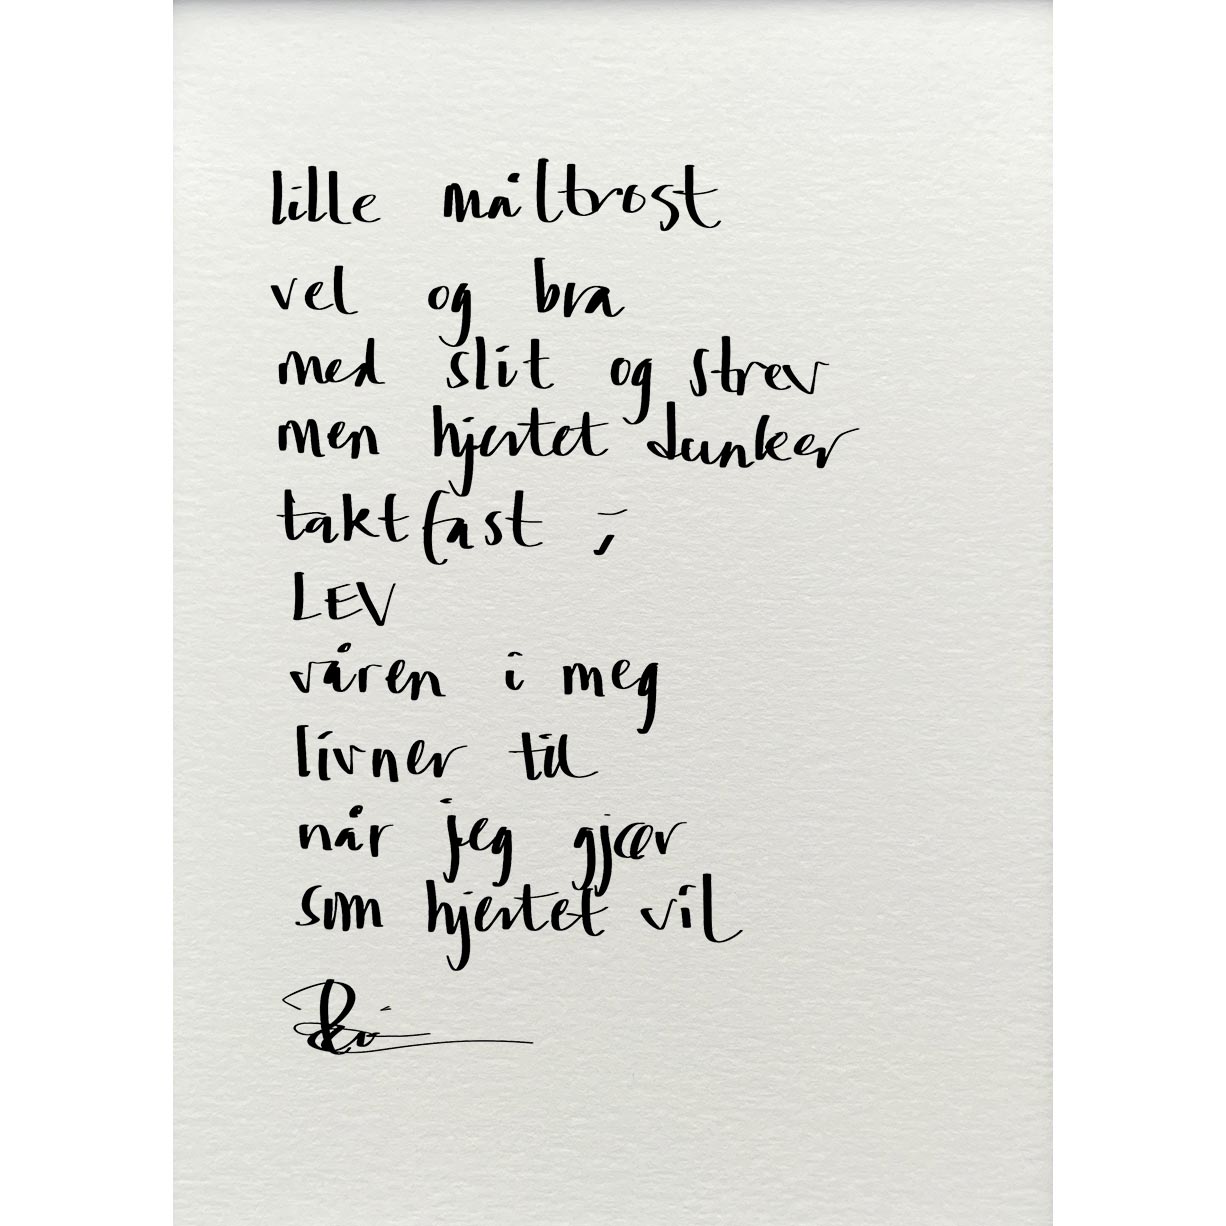 lille måltrost
vel og bra
med slit og strev
men hjertet dunker
taktfast ;
LEV
våren i meg
livner til
når jeg gjær
som hjertet vil